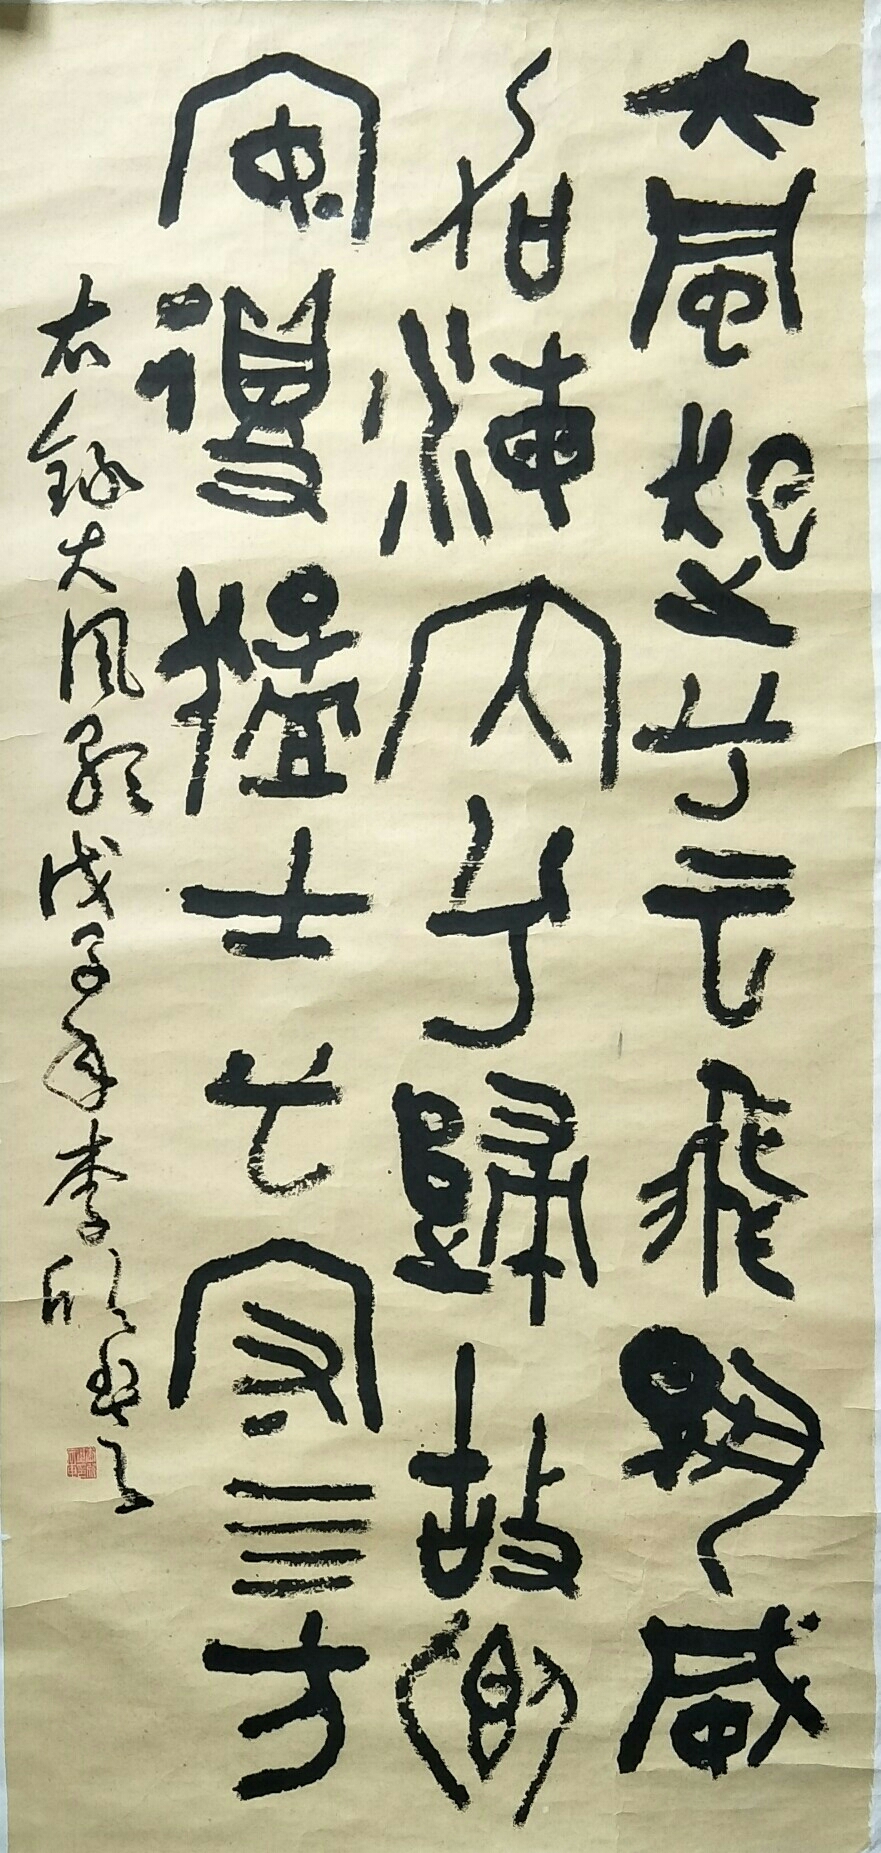 大風起兮云飛揚威
加海内兮歸故鄉
安得猛士兮守三方
右録大風歌戊子年李欣書